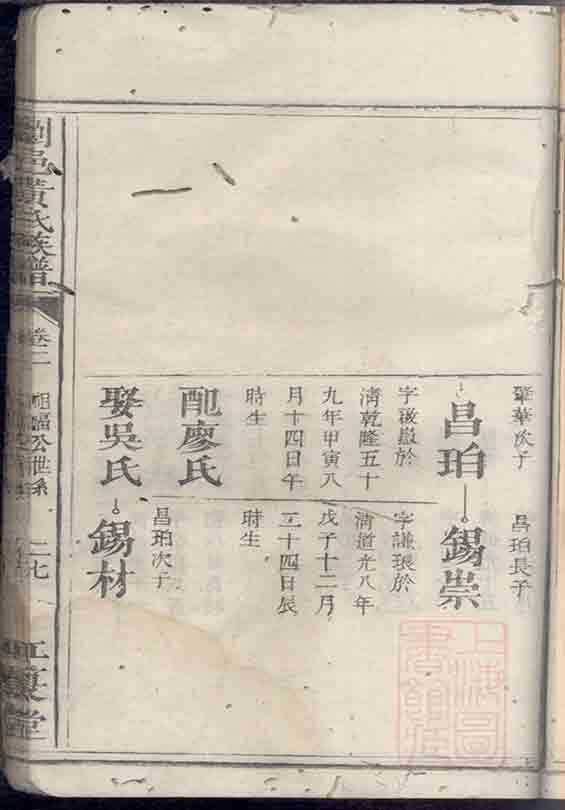 肇華次子
昌珀
字後嶽於
清乾隆五十
九年甲寅八
月十四日午
時生
配廖氏
娶吳氏
昌珀長子
錫崇
字謙環於
清道光八年
戊子十二月
二十四日辰
時生
昌珀次子
錫材
瀏邑黃氏族譜
卷二
公世系
二七
江夏堂
上海圖
書館藏